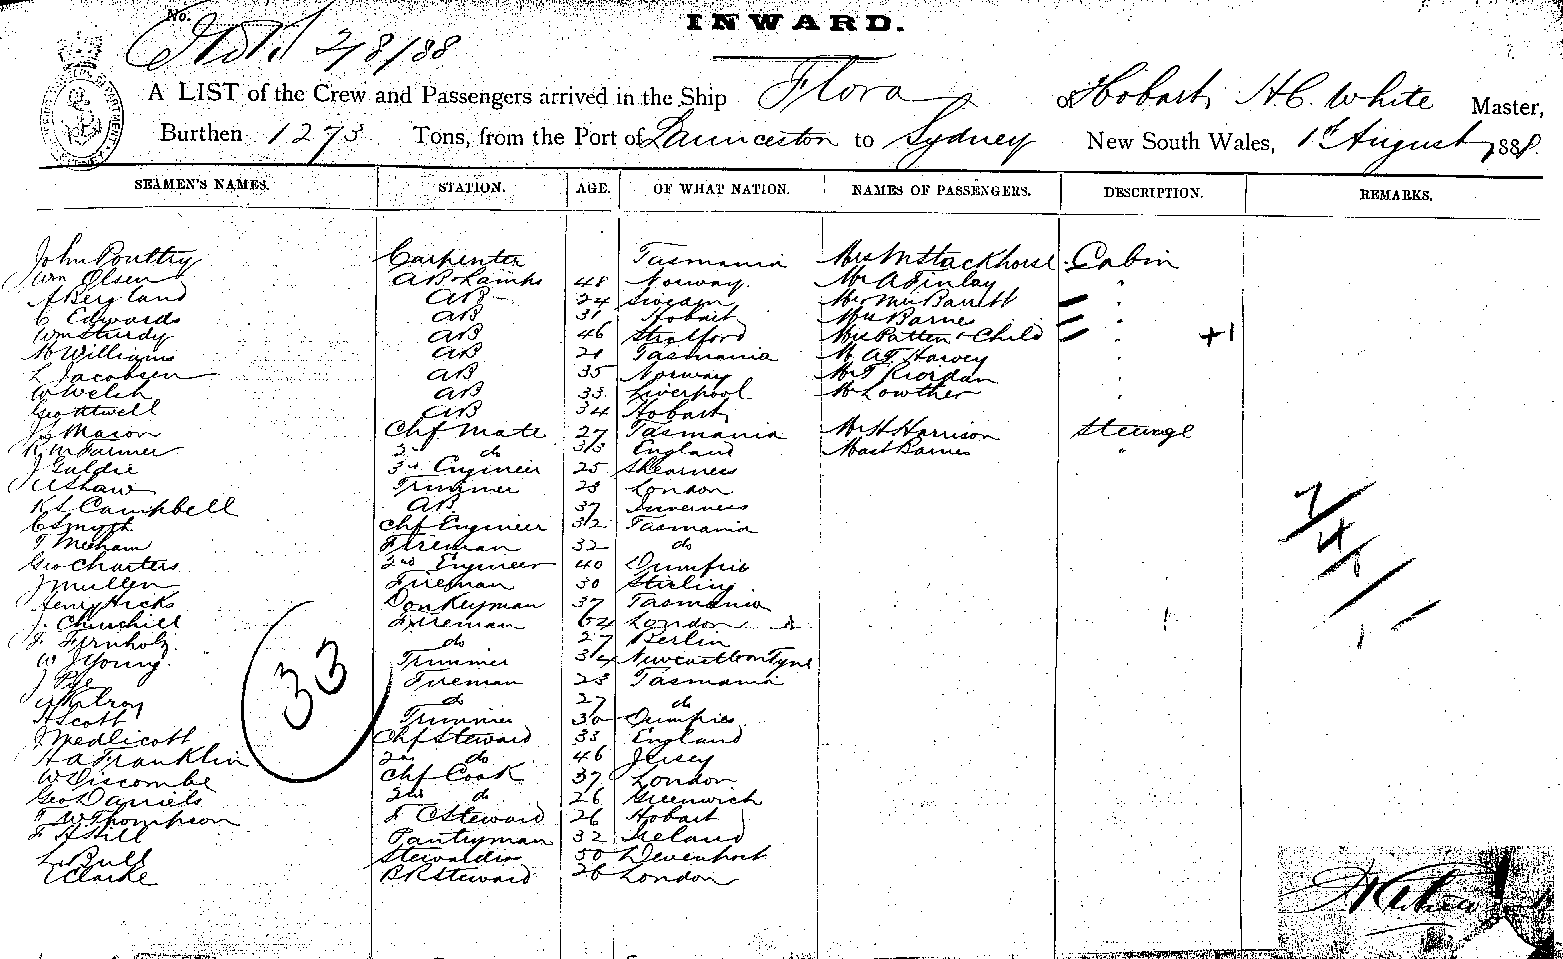 INWARD.
No.
2/8/88
A LIST of the Crew and Passengers arrived in the Ship Flora of Hobart, H C. White Master,
Burthen 1273 Tons, from the Port of Launceston to Sydney New South Wales, 1st August 1888.
SEAMEN'S NAMES. STATION. AGE. OF WHAT NATION. NAMES OF PASSENGERS. DESCRIPTION. REMARKS.
John Poultry Carpenter Tasmania Mrs M Stackhouse Cabin
Wm Olsen AB + Lamps 48 Norway. Mr A Finlay "
A Bergland AB 24 Sweden Mr + Mrs Barrett "
C Edwards AB 31 Hobart Mrs Barnes "
Wm Sturdy AB 46 Stratford Mrs Patten + Child " +1
M Williams AB 21 Tasmania M A F Harvey "
L Jacobsen AB 35 Norway Mr T Riordan "
W Welch AB 33 Liverpool M Lowther "
Geo Atwell AB 34 Hobart
J L Mason Chf Mate 27 Tasmania Mr H Harrison Steerage
R W Farmer 2nd do 33 England Mast Barnes "
J Goldie 3rd Engineer 25 Sheerness
Shaw Trimmer 23 London
K L Campbell AB. 37 Inverness
C Smyth Chf Engineer 32 Tasmania
T Meeham Fireman 32 do
Geo Charters 2nd Engineer 40 Dumfries
J Mullen Fireman 30 Stirling
Henry Hicks Donkeyman 37 Tasmania
J. Churchill Fireman London
F. Fernholz do 27 Berlin
W J Young. Trimmer 34 Newcastle on Tyne
J Pye Fireman 23 Tasmania
Kilroy do 27 do
H Scott Trimmer 30 Dumfries
J Medlicott Chf Steward 33 England
H A Franklin 2nd do 46 Jersey
W Discombe Chf Cook 37 London
Geo Daniels 2nd do 26 Greenwich
T W Thompson F C Steward 26 Hobart
F H Hill Pantryman 32 Ireland
L Bull Stewardess 50 Devenport
E Clarke BR Steward 26 London
33
7/4/1/1